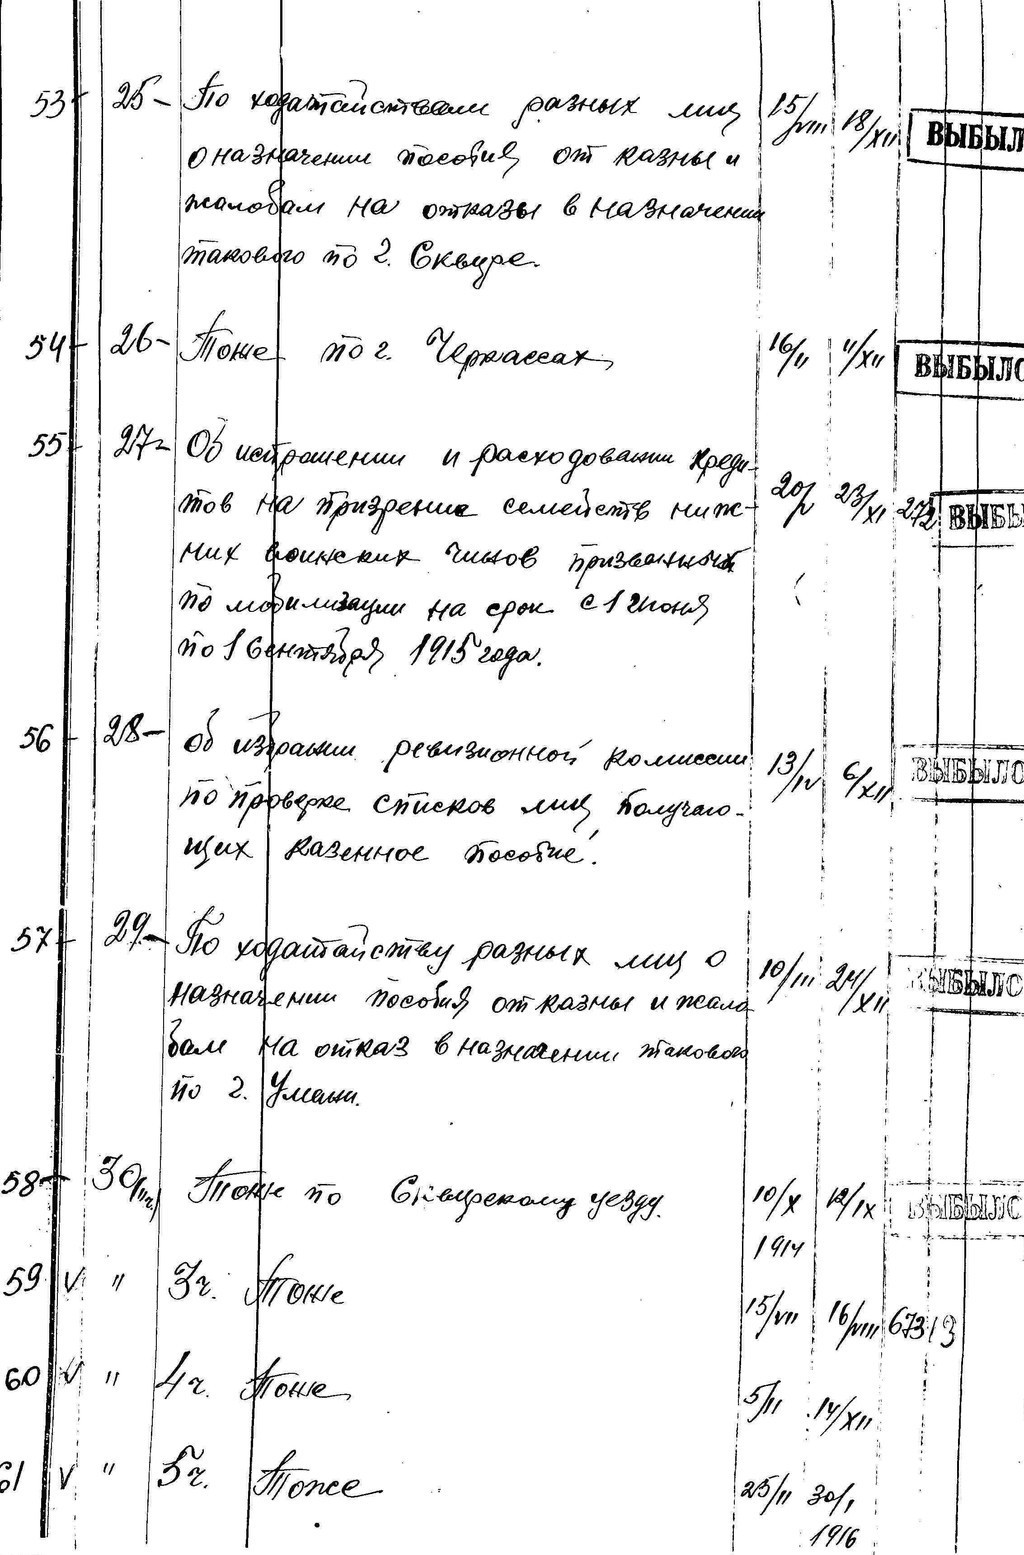 53 25- По ходатайствам разных лиц 15/VIII 18/XII ВЫБЫЛ
о назначении пособия от казны и
жалобам на отказы в назначении
такового по г. Сквире.
54 26- Тоже по г. Черкассах 16/II 11/XII ВЫБЫЛО
55 27- Об испрошении и расходовании креди-
тов на призрение семейств ниж- 20/V 23/XI 272 ВЫБЫ
них воинских чинов призванных
по мобилизации на срок с 1 Июня
по 1 Сентября 1915 года.
56 28- Об избрании ревизионной комиссии 13/IV 6/XII ВЫБЫЛО
по проверке списков лиц получаю-
щих казенное пособие.
57 29- По ходатайству разных лиц о 10/III 24/XII ВЫБЫЛО
назначении пособия от казны и жало
бам на отказ в назначении такового
по г. Умани.
58 30 Тоже по Сквирскому уезду. 10/X 12/IX ВЫБЫЛО
1914
59 V " 3ч. Тоже 15/VII 16/VIII 673 3
60 V " 4ч. Тоже 5/II 14/XII
61 V " 5ч. Тоже 25/II 30/I
1916